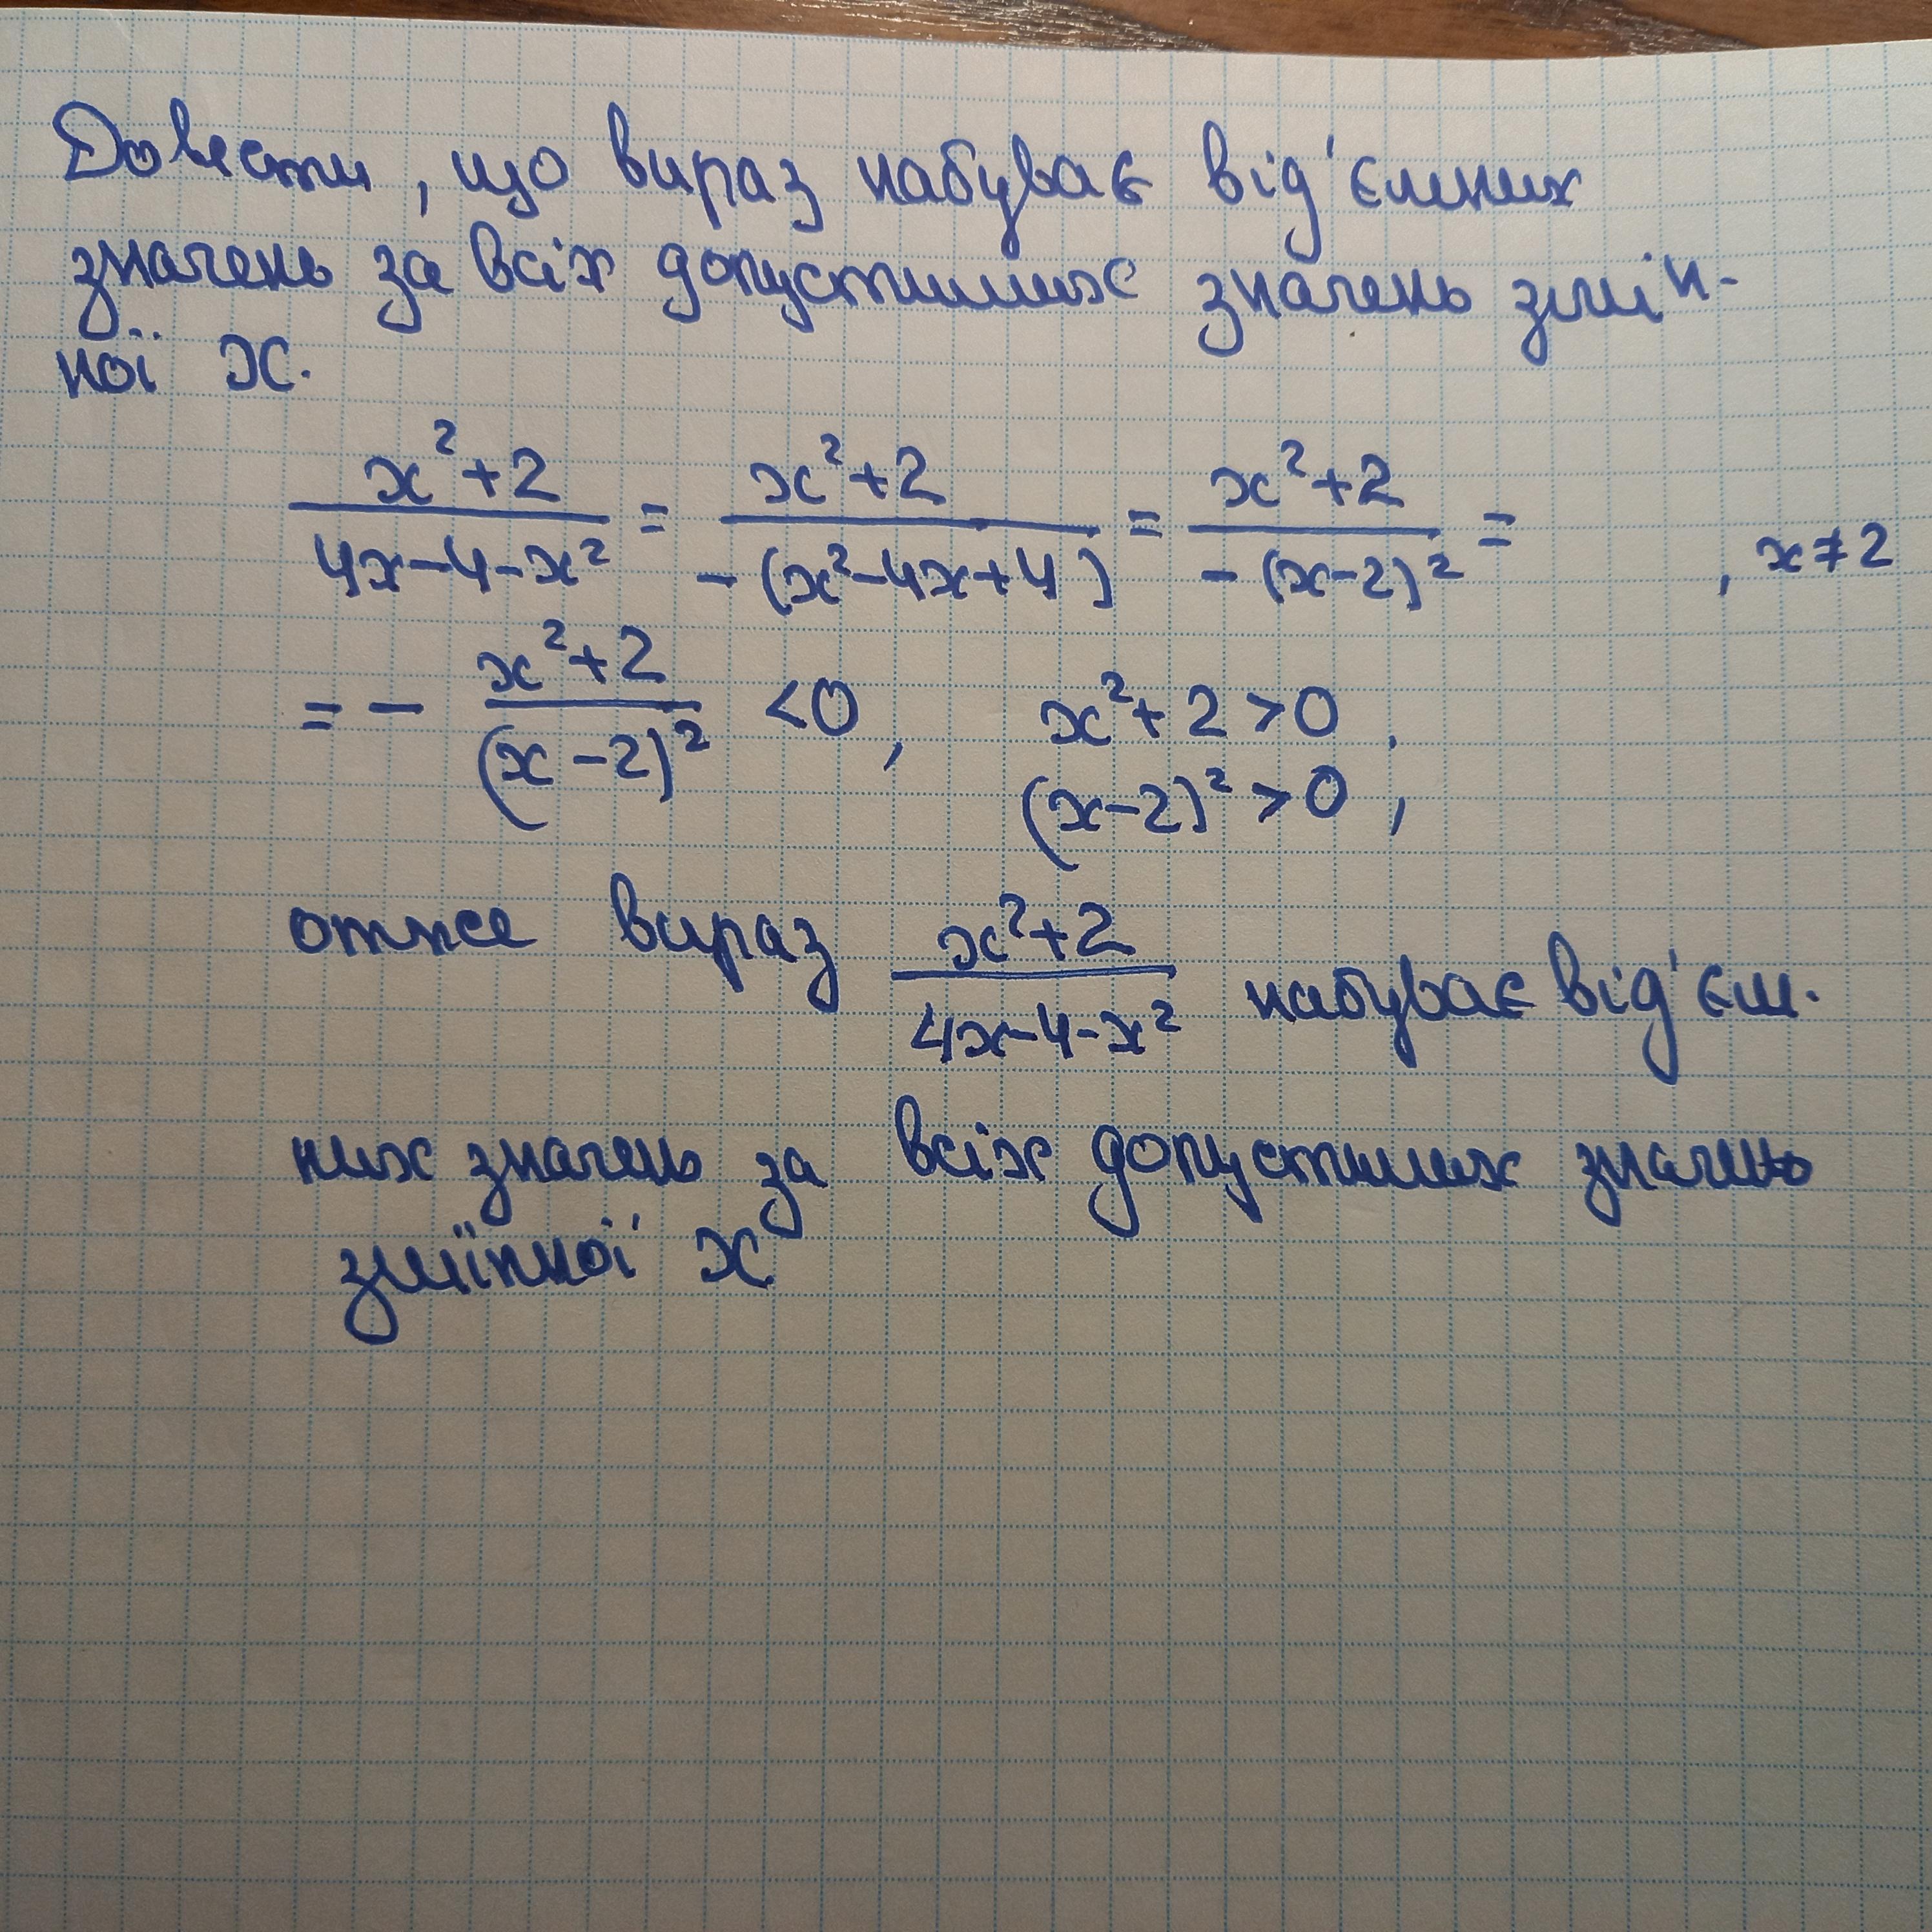 Довести, що вираз набуває від'ємних
значень за всіх допустимих значень змін-
ної x.
(x²+2)/(4x-4-x²) = (x²+2)/(-(x²-4x+4)) = (x²+2)/(-(x-2)²) = , x≠2
= - (x²+2)/((x-2)²) <0, x²+2>0,
(x-2)²>0,
отже вираз (x²+2)/(4x-4-x²) набуває від'єм-
них значень за всіх допустимих значень
змінної x